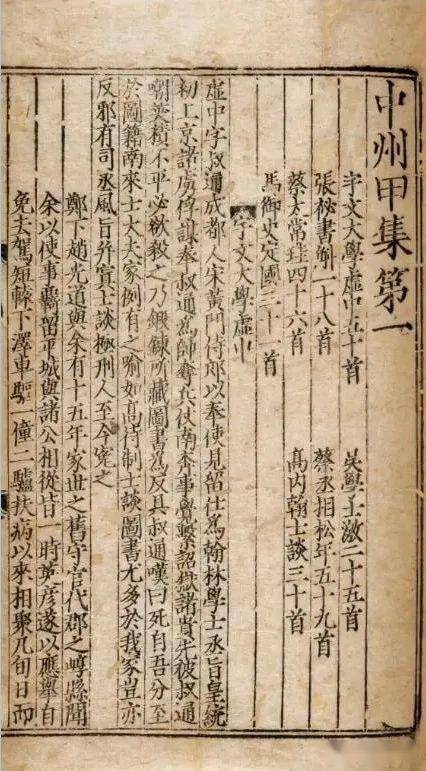 中州甲集第一
宇文大學虛中五十首　吳學士激二十五首
張祕書斛一十八首　蔡丞相松年五十九首
蔡太常珪四十六首　高內翰士談三十首
馬御史定國三十一首
宇文大學虛中
虛中字叔通成都人宋黃門侍郎以奉使見留仕爲翰林學士丞旨皇統
初上京諸虜俘謀奉叔通爲帥奪兵仗南奔事覺繫詔獄諸貴先被叔通
嘲笑積不平必欲殺之乃鍛鍊所藏圖書爲反具叔通嘆曰死自吾分至
於圖籍南來士大夫家例有之喻如高待制士談圖書尤多於我家豈亦
反邪有司丞風旨并寘士談極刑人至今寃之
鄭下趙光道與余有十五年家世之舊守官代郡之崞縣聞
余以使事羈留平城與諸公相從皆一時英彥遂以應舉自
免去駕短轅下澤車驅一僮二驢扶病以來相聚凡旬日而